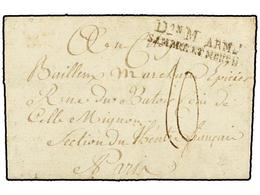 Dn M ARMÉ
SAMBRE ET MEUSE
Au
Bailleux Marchand Epicier
Rue du Batoir coin de
Celle Mignon
Section du Théatre français
A Paris